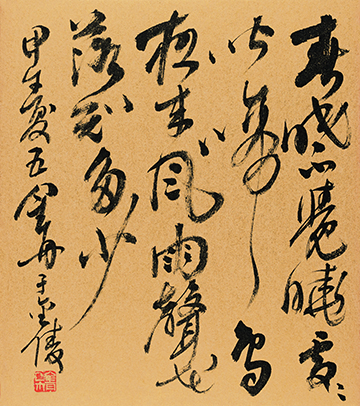 春眠不覺曉處〻
聞啼鳥
夜来風雨聲花
落知多少
甲午夏五于